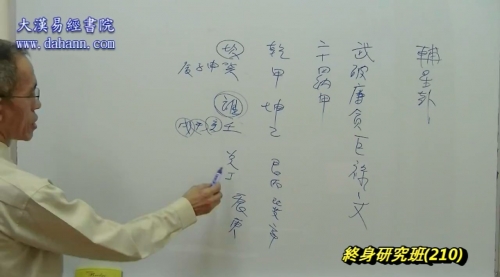 大漢易經書院
www.dahann.com
輔星卦
武破廉貪巨祿文
二十四納甲
乾甲 坤乙 艮丙 巽辛
坎癸 離壬 兌丁 震庚
終身研究班(210)